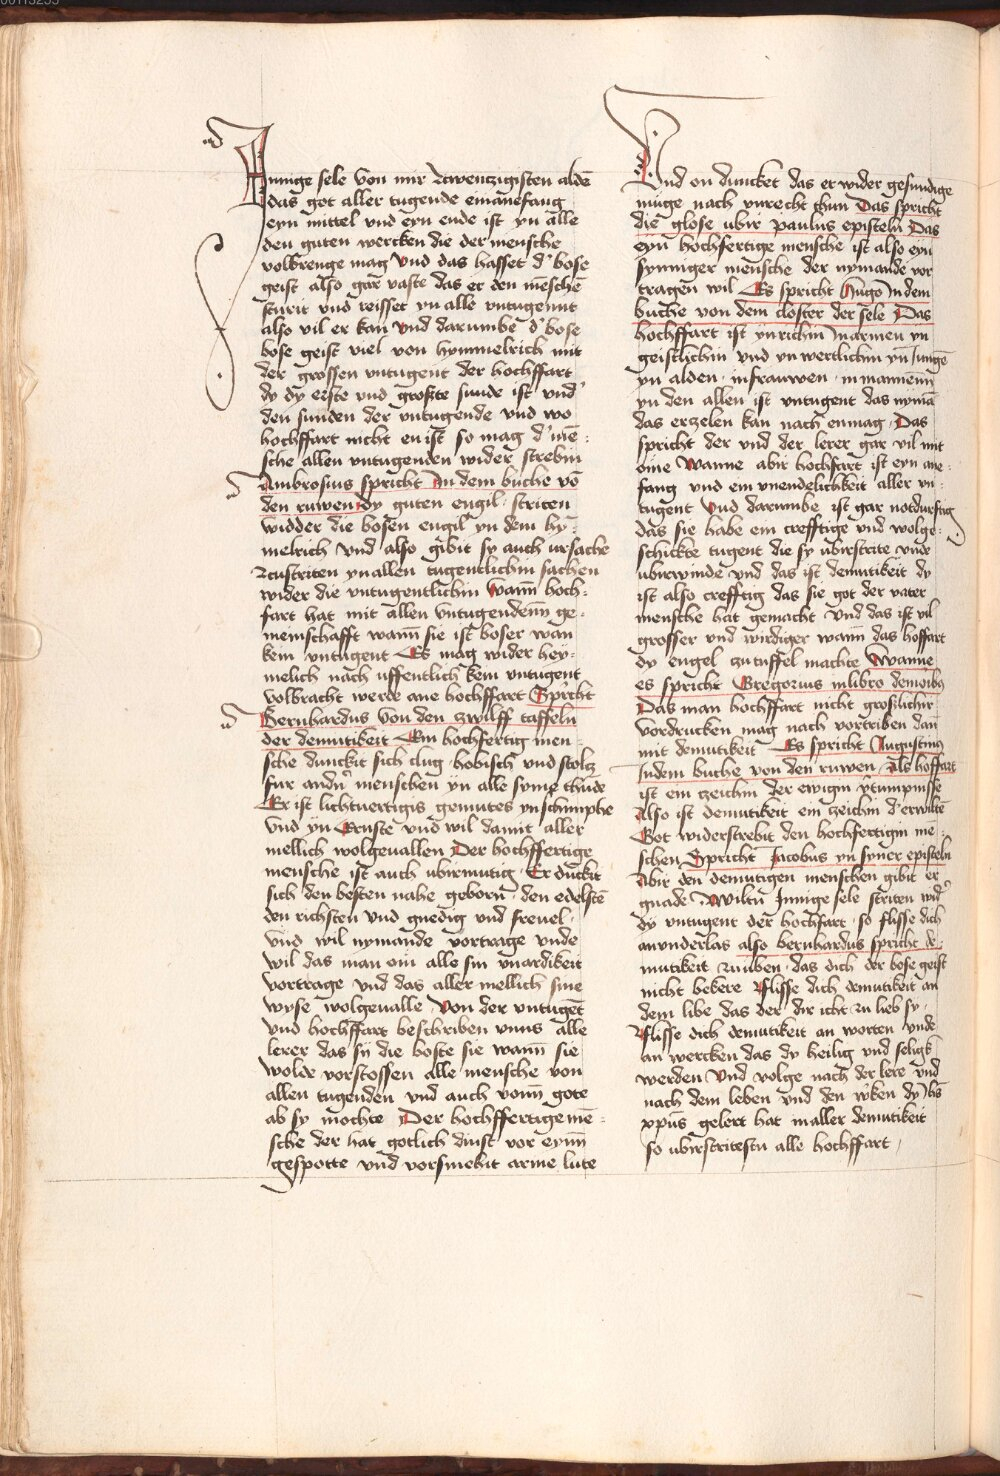 Innige sele von mir Zcwenczigisten aldē
das got aller tugende ein anefang
eyn mittel vnd eyn ende ist yn alle
den guten wercken die der mensche
volbrenge mag Vnd das hasset d' bose
geist also gar vaste das er den mēsche
sturit vnd reisset yn alle vntugennt
also vil er kan Vnd darumbe d' bose
bose geist viel von hymmelrich mit
der grossen vntugent der hochffart
dy dy erste vnd groste sunde ist vnd'
den sunden der vntugende vnd wo
hochffart nicht en ist so mag d' mē-
sche allen vntugenden wider strebin
Ambrosius spricht In dem buche vō
den ruwen dy guten engil striten
widder die bosen engil yn dem hy-
melrich Vnd also gibit sy auch ursache
Zcustriten yn allen tugentlichin sachen
wider die vntugentlichin Wann hoch-
fart hat mit allen vntugendenn ge-
meinschafft wann sie ist boser wan
kein vntugent Es mag wider hey-
melich nach uffentlich kein vntugent
volbracht werde ane hochffart Spricht
Bernhardus von den zwulff taffeln
der demutikeit Ein hochfertig men-
sche dunckit sich clug hobisch vnd stolcz
fur andn' menschen yn alle syme thūde
Er ist lichtuertigis gemutes yn schimphe
vnd yn Ernste vnd wil damit aller
mellich wolgeuallen Der hochffertige
mensche ist auch ubirmutig Er duckit
sich den besten nahe geborn den edelstē
den richsten vnd gnedig vnd freuel
vnd wil nymande vortrage vnde
wil das man om alle sin vnardikeit
vortrage vnd das aller mellich sine
wyse wolgeualle Von der vntugēt
vnd hochffart beschriben vnns alle
lerer das sy die boste sie wann sie
wolde vorstossen alle mensche von
allen tugenden vnd auch vonn gote
ab sy mochte Der hochffertige mē-
sche der hat gotlich dinst vor eynn
gespotte vnd vorsmehit arme lute
Vnd on duncket das er wider gesundige
muge nach vnrecht thun Das spricht
die glose ubir paulus episteln Das
eyn hochfertige mensche ist also eyn
synniger mensche der nymande vor
tragen wil Es spricht Hugo In dem
buche von dem closter der sele Das
hochffart ist yn richin In armen yn
geistlichin vnd yn wertlichin yn Jungē
yn alden in frauwen in mannenn
yn den allen ist vntugent das nymā
das erzelen kan nach enmag Das
spricht der vnd der lerer gar vil mit
eine Wanne abir hochfart ist eyn ane-
fang vnd ein vnendelichkeit aller vn-
tugent Vnd darumbe ist gar notdurftig
das sie habe ein crefftige vnd wolge-
schickte tugent die sy ubirstrite vnde
ubirwinde vnd das ist demutikeit dy
ist also crefftig das sie got der vater
mensche hat gemacht Vnd das ist vil
grosser vnd wirdiger wann das hoffart
dy engel zu tuffel machte Wanne
es spricht Gregorius in libro de moib9
Das man hochffart nicht groslichir
vordrucken mag nach vortriben dan
mit demutikeit Es spricht Augustinus
In dem buche von den ruwen Als hoffart
ist ein zeichin der ewigin v'tumpnisse
Also ist demutikeit ein zeichin d' erweltē
Got widerstrebit den hochfertigin mē-
schen Spricht Jacobus yn syner episteln
Abir den demutigen menschen gibit er
gnade Wiltu Innige sele striten wid'
dy vntugent der hochfart so flisse dich
an vnderlas also bernhardus spricht de-
mutikeit zu uben das dich der bose geist
nicht bekere Flisse dich demutikeit an
dem libe das der dir icht zu lieb sy
Flisse dich demutikeit an worten vnde
an wercken das dy heilig vnd seligk
werden Vnd volge nach der lere vnd
nach dem leben vnd den w'ken dy ihs
xpūs gelert hat in aller demutikeit
so ubirstritestu alle hochffart